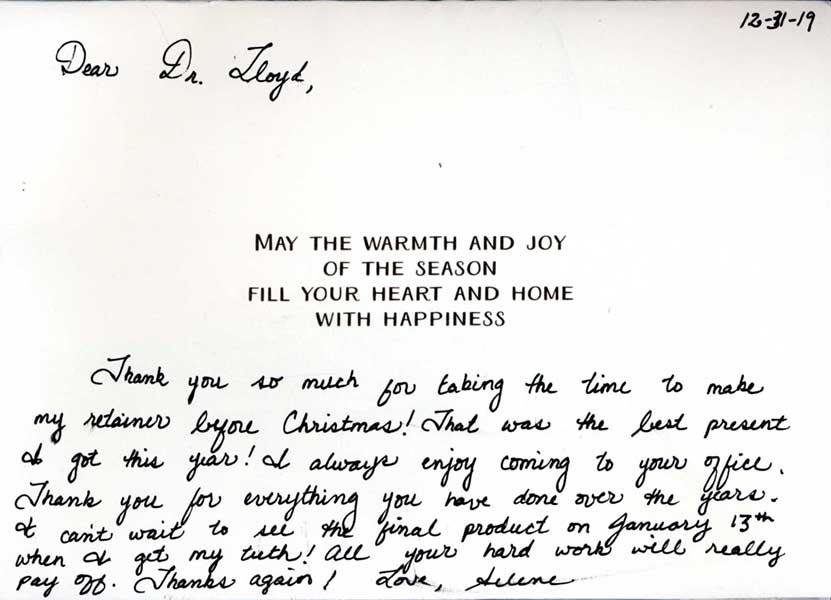 12-31-19
Dear Dr. Lloyd,
MAY THE WARMTH AND JOY
OF THE SEASON
FILL YOUR HEART AND HOME
WITH HAPPINESS
Thank you so much for taking the time to make
my retainer before Christmas! That was the best present
I got this year! I always enjoy coming to your office.
Thank you for everything you have done over the years.
I can't wait to see the final product on January 13th
when I get my teeth! All your hard work will really
pay off. Thanks again! Love, Selene